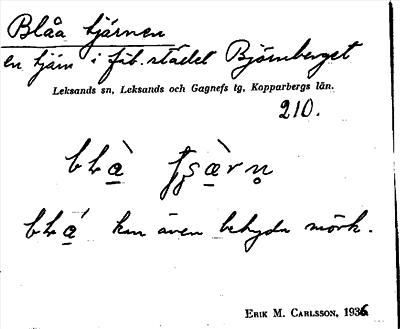 Blåa tjärnen
en tjärn i fäb.stället Björnberget
Leksands sn, Leksands och Gagnefs tg, Kopparbergs län.
210.
blå̀
blá kan även betyda mörk.
ERIK M. CARLSSON, 1936